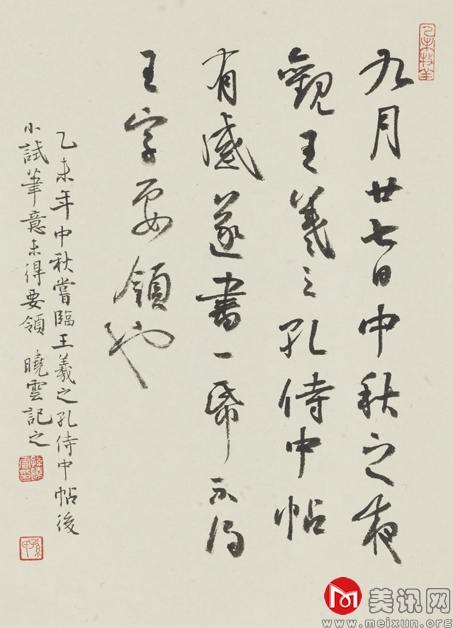 九月廿七日中秋之夜
觀王羲之孔侍中帖
有感遂書一帋不得
王字要領也
乙未年中秋嘗臨王羲之孔侍中帖後
小試筆意未得要領 曉雲記之
美讯网
www.meixun.org